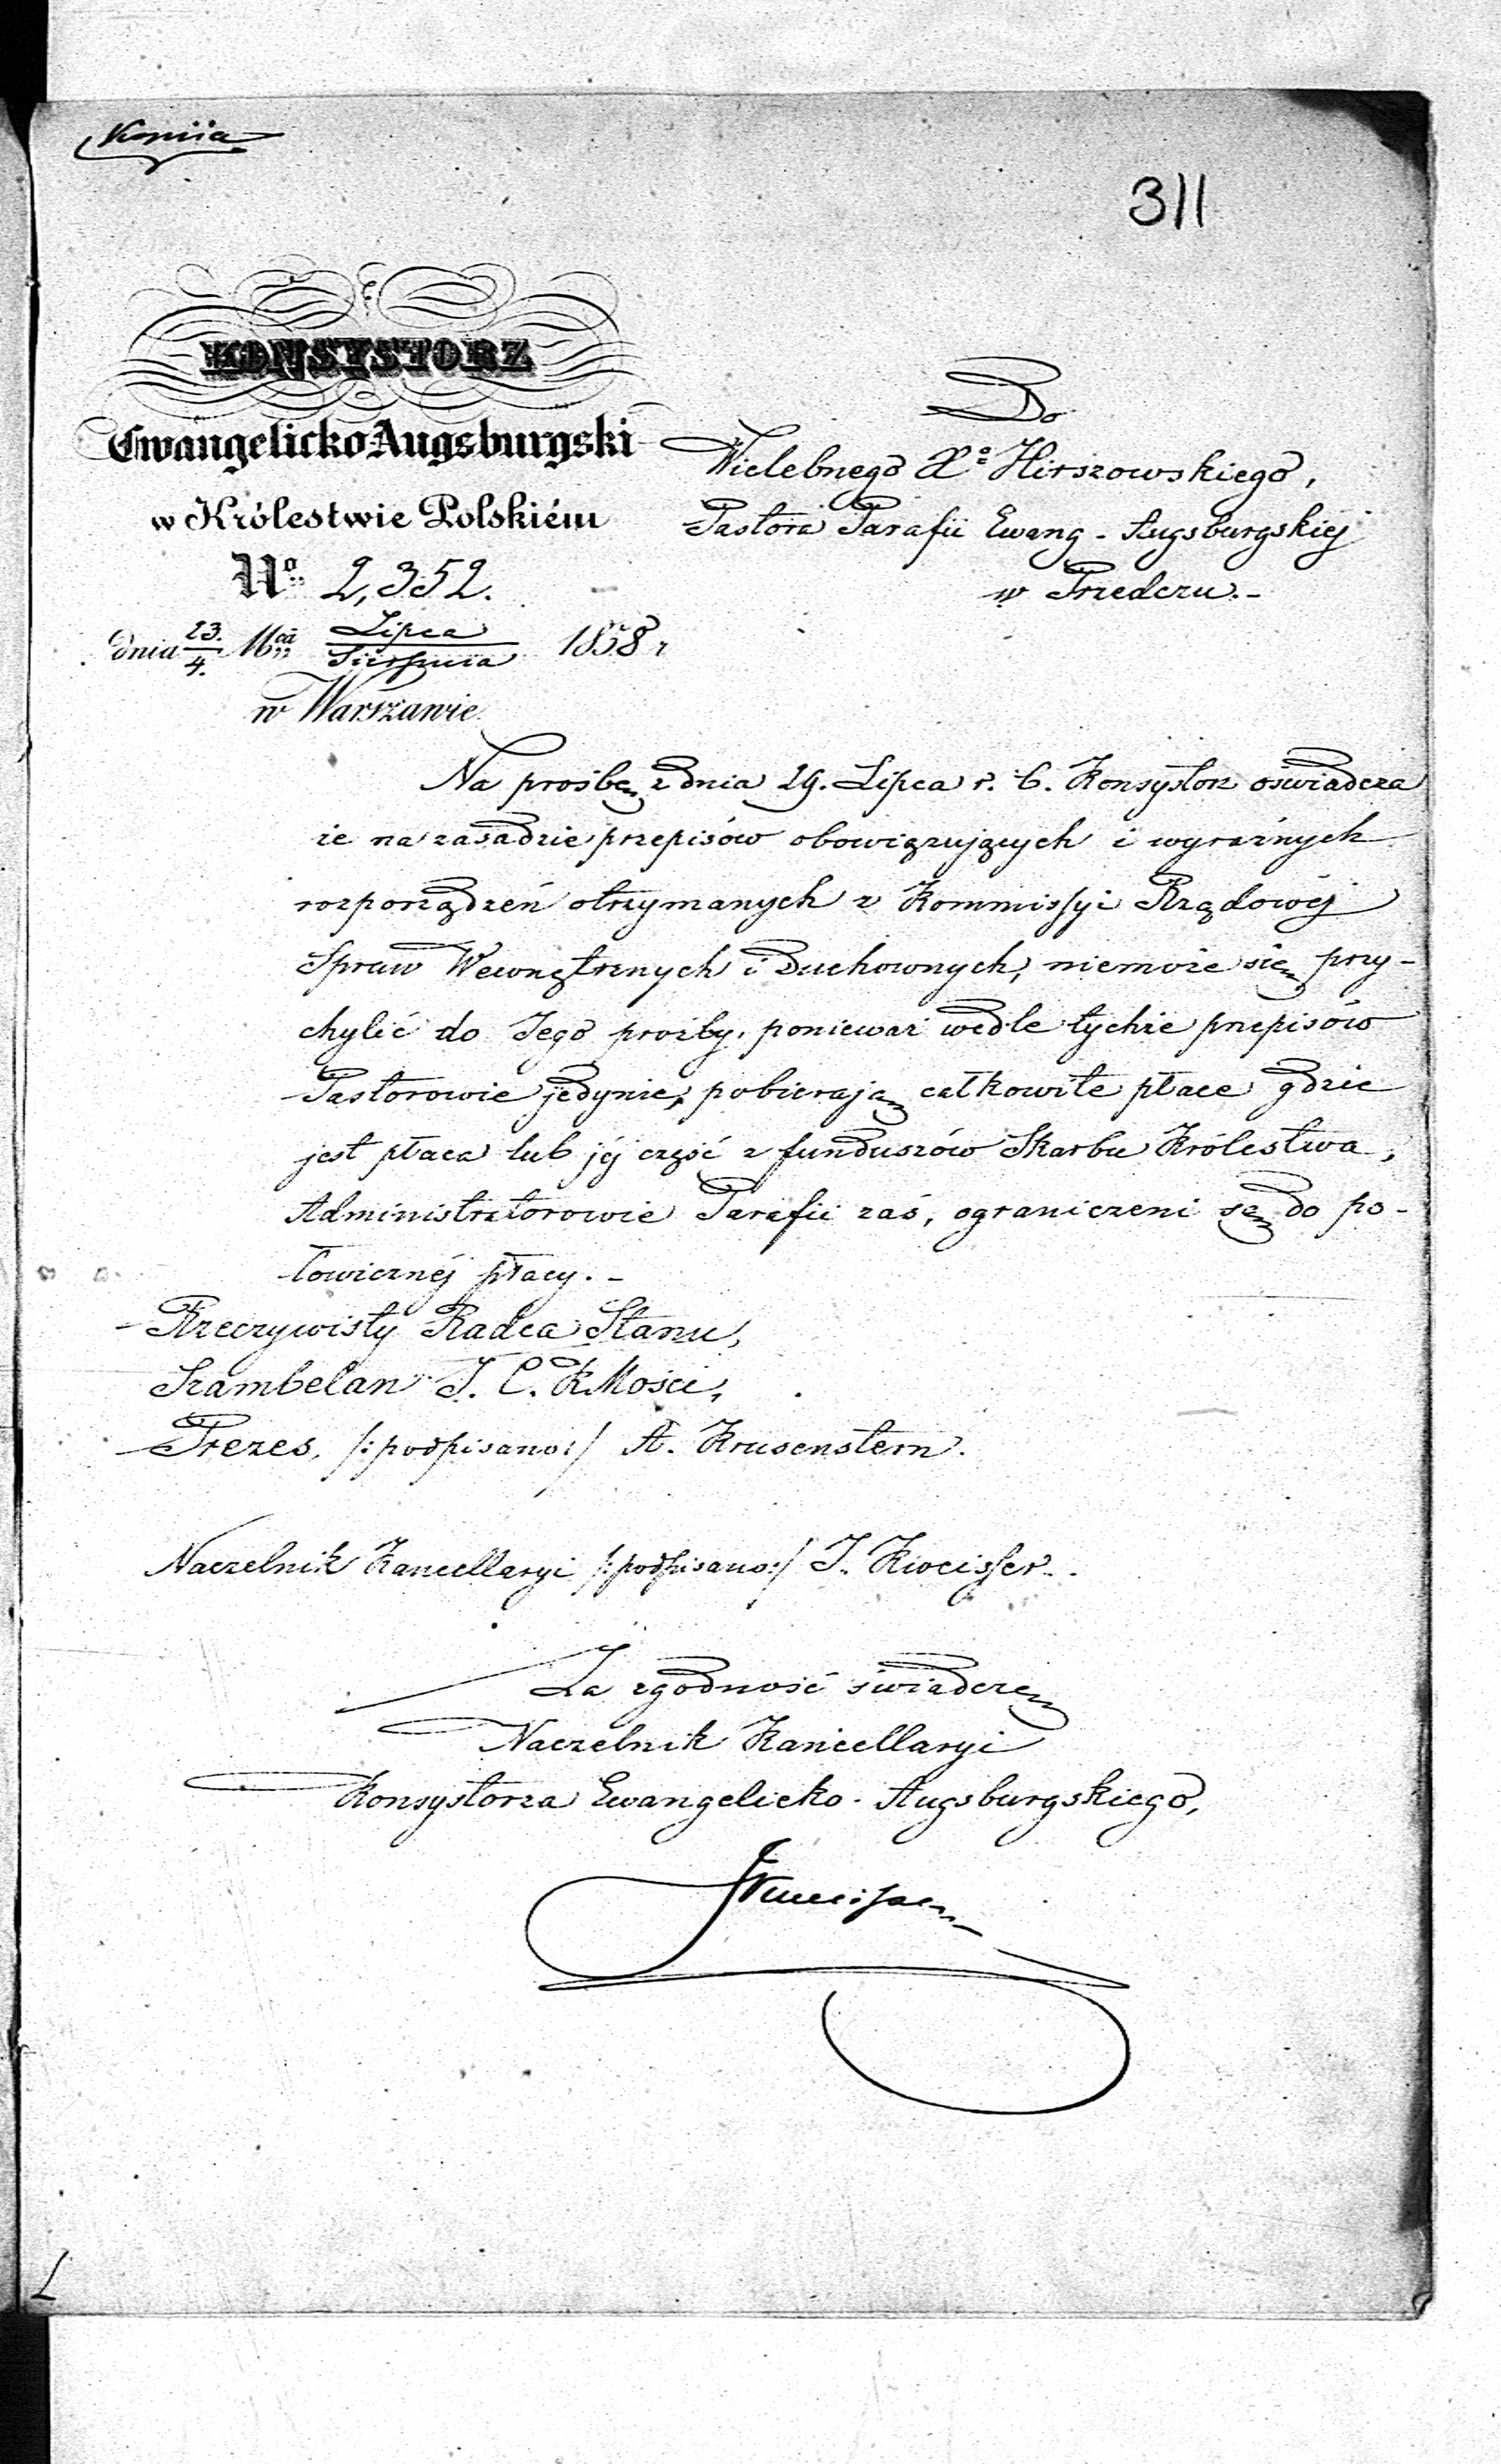 Kopiia
311
KONSYSTORZ
Ewangelicko Augsburgski
w Królestwie Polskiém
No 2,352.
dnia 23./4. Mca Lipca/Sierpnia 1858 r
w Warszawie
Do
Wielebnego Xo Hirszowskiego,
Pastora Parafii Ewang - Augsburgskiéj
w Przedczu.-
Na prośbę z dnia 29. Lipca r. b. Konsystorz oświadcza
że na zasadzie przepisów obowiązujących i wyraźnych
rozporządzeń otrzymanych z Kommissyi Rządowéj
Spraw Wewnętrznych i Duchownych, niemoże się przy-
chylić do Jego prośby, ponieważ wedle tychże przepisów
Pastorowie jedynie, pobierają całkowite płace gdzie
jest płaca lub jéj część z funduszów Skarbu Królestwa,
Administratorowie Parafii zaś, ograniczeni są do po-
łowicznéj płacy. -
Rzeczywisty Radca Stanu,
Szambelan J. C. K Mości,
Prezes, /:podpisano:/ A. Krusenstern.
Naczelnik Kancellaryi /:podpisano:/ J.
Za zgodność świadczę
Naczelnik Kancellaryi
Konsystorza Ewangelicko - Augsburgskiego,